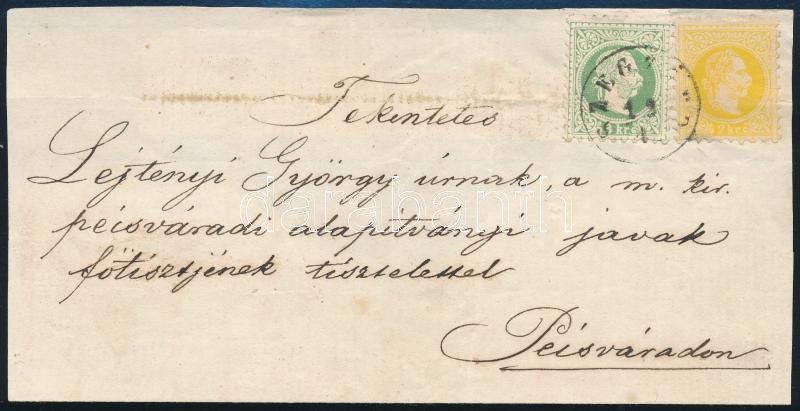 Tekintetes
Lejtényi György úrnak, a m. kir.
pécsváradi alapítványi javak
főtisztjének tisztelettel
Pécsváradon
3 kr
2 kr
darabanth